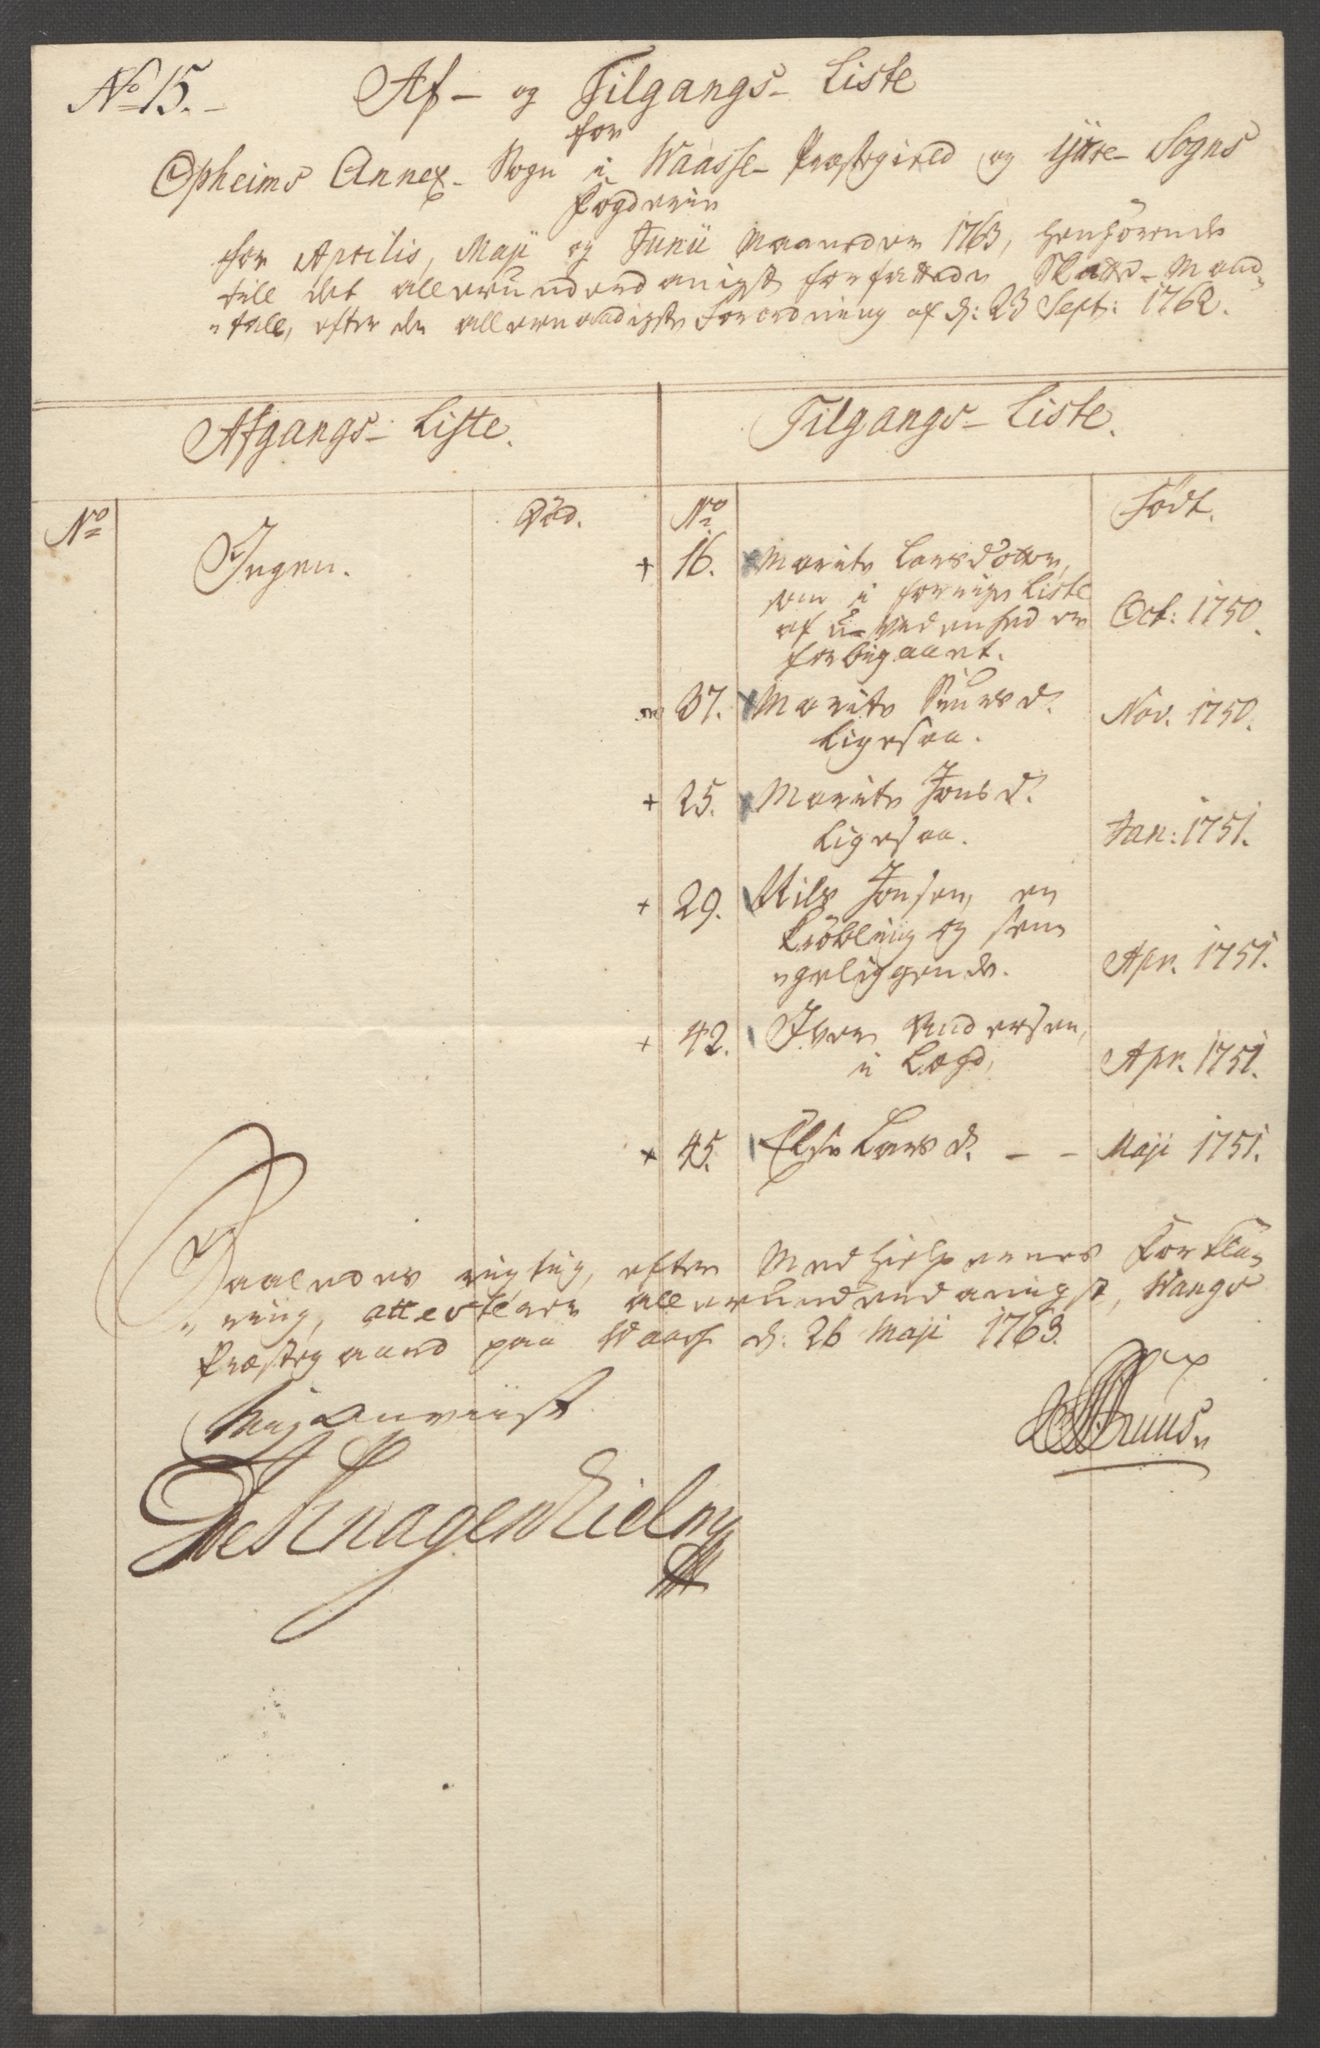 No 15. Af- og Tilgangs- Liste
for
Opheims Annex- Sogn i Waasse- Præstegield og Yttre- Sogns
Fogderie
for Aprilis, Maji og Junii Maaneder 1763, henhörende
till det allerunderdanigst forfattede Skatte-Mand-
„tall, efter den allernaadigste Forordning af d: 23 Sept: 1762.
Afgangs- Liste. Tilgangs- Liste.
No Död. No Födt.
Ingen. + 16. Marite Larsdotter,
som i forrige Liste
af u-videnhed er Oct: 1750.
forbigaaet.
37. Marite Siursd. Nov. 1750.
Ligesaa.
+ 25. Marite Jonsd.
Ligesaa. Jan: 1751.
+ 29. Nils Jonsen, en
Kröbling og sen
„geliggende. Apr. 1751.
+ 42. Iver Andersen,
i Lægd, Apr. 1751.
+ 45. Else Larsd. - - Maji 1751.
Saaledes rigtig, efter Medhielpernes Forkla-
„ring, attesterer allerunderdanigst, Wangs
Præstegaard paa Waass d: 26 Maji 1763.
Mig anviist
Knagenhielm